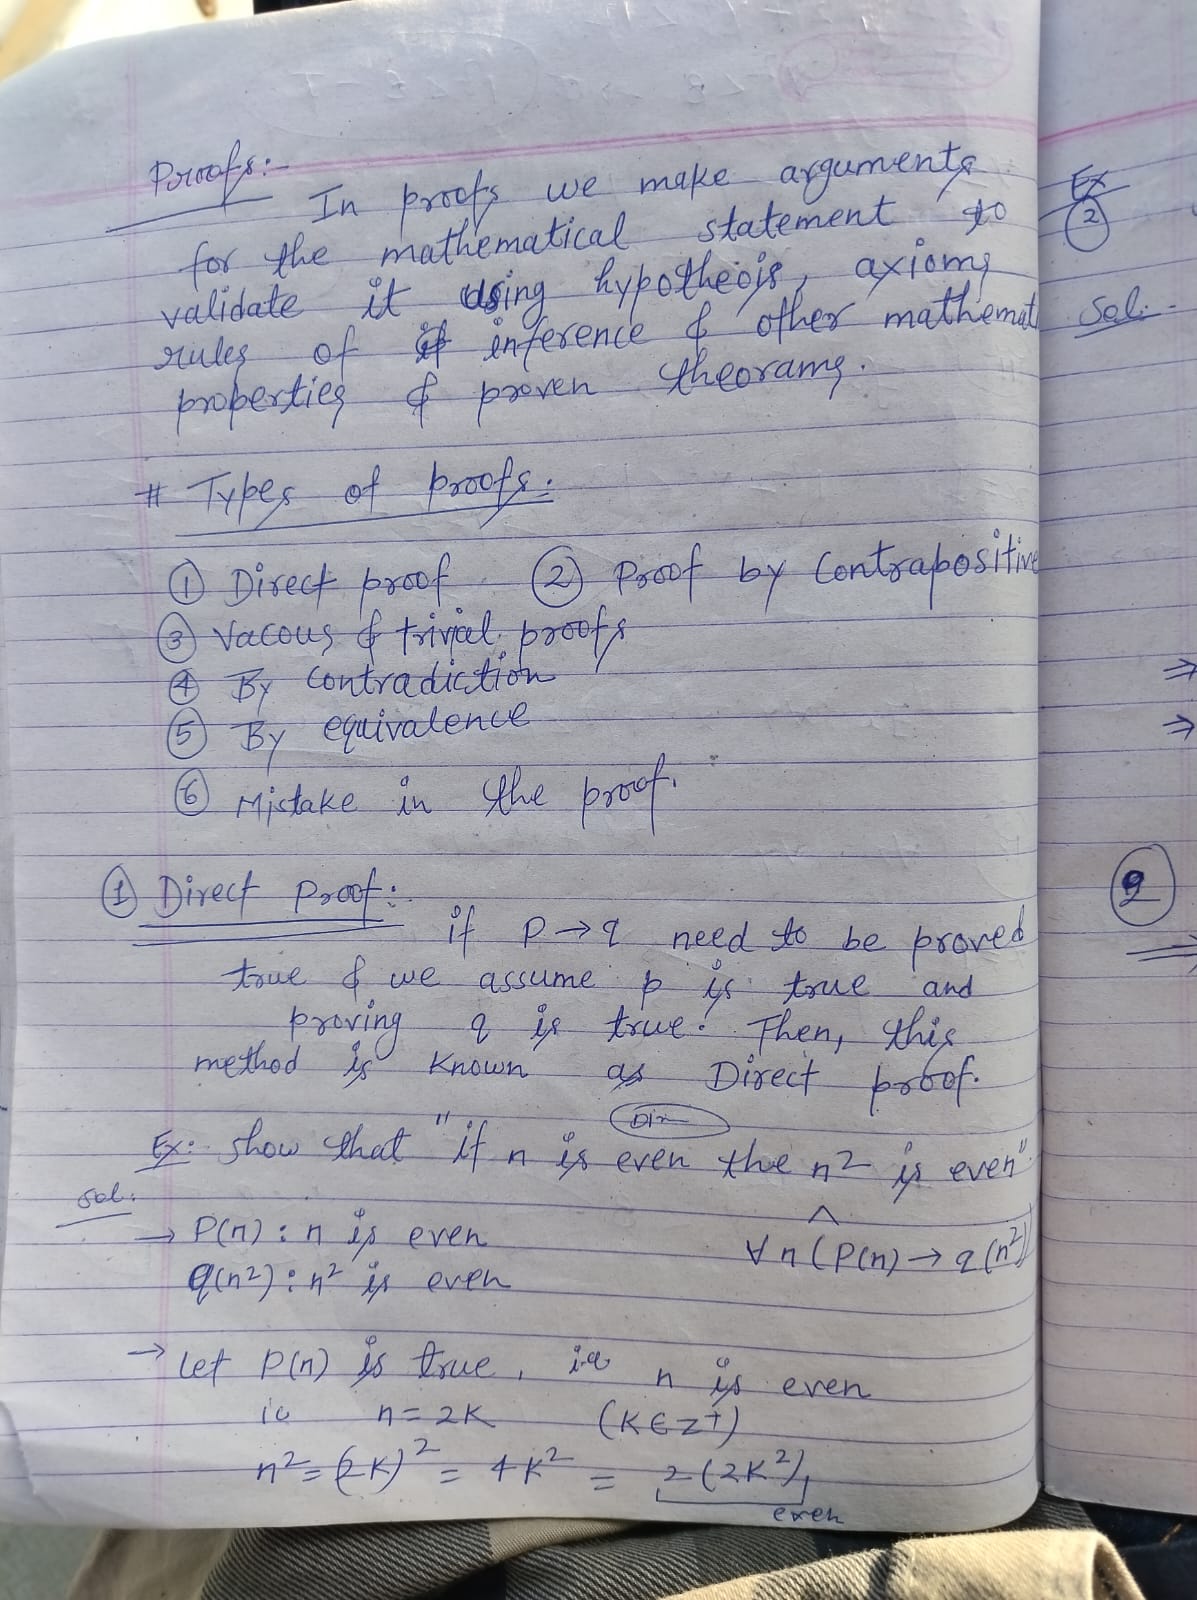 Proofs:-
In proofs we make arguments
for the mathematical statement to
validate it using hypothesis, axioms
rules of inference & other mathemat
properties & proven theorams.
# Types of proofs:
① Direct proof ② Proof by Contrapositive
③ Vacous & trivial proofs
④ By Contradiction
⑤ By equivalence
⑥ Mistake in the proof.
① Direct Proof:
if P → q need to be proved
true & we assume p is true and
proving q is true. Then, this
method is known as Direct proof.
Ex: show that "if n is even the n² is even"
Sol.
→ P(n) : n is even
∀n (P(n) → q(n²))
q(n²) : n² is even
→ Let P(n) is true, i.e n is even
ie n = 2K (K∈Z+)
n² = (2K)² = 4K² = 2(2K²),
even
Ex
②
Sol:-
⇒
⇒